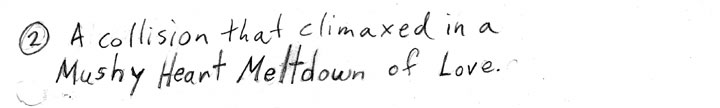 ② A collision that climaxed in a
Mushy Heart Meltdown of Love.